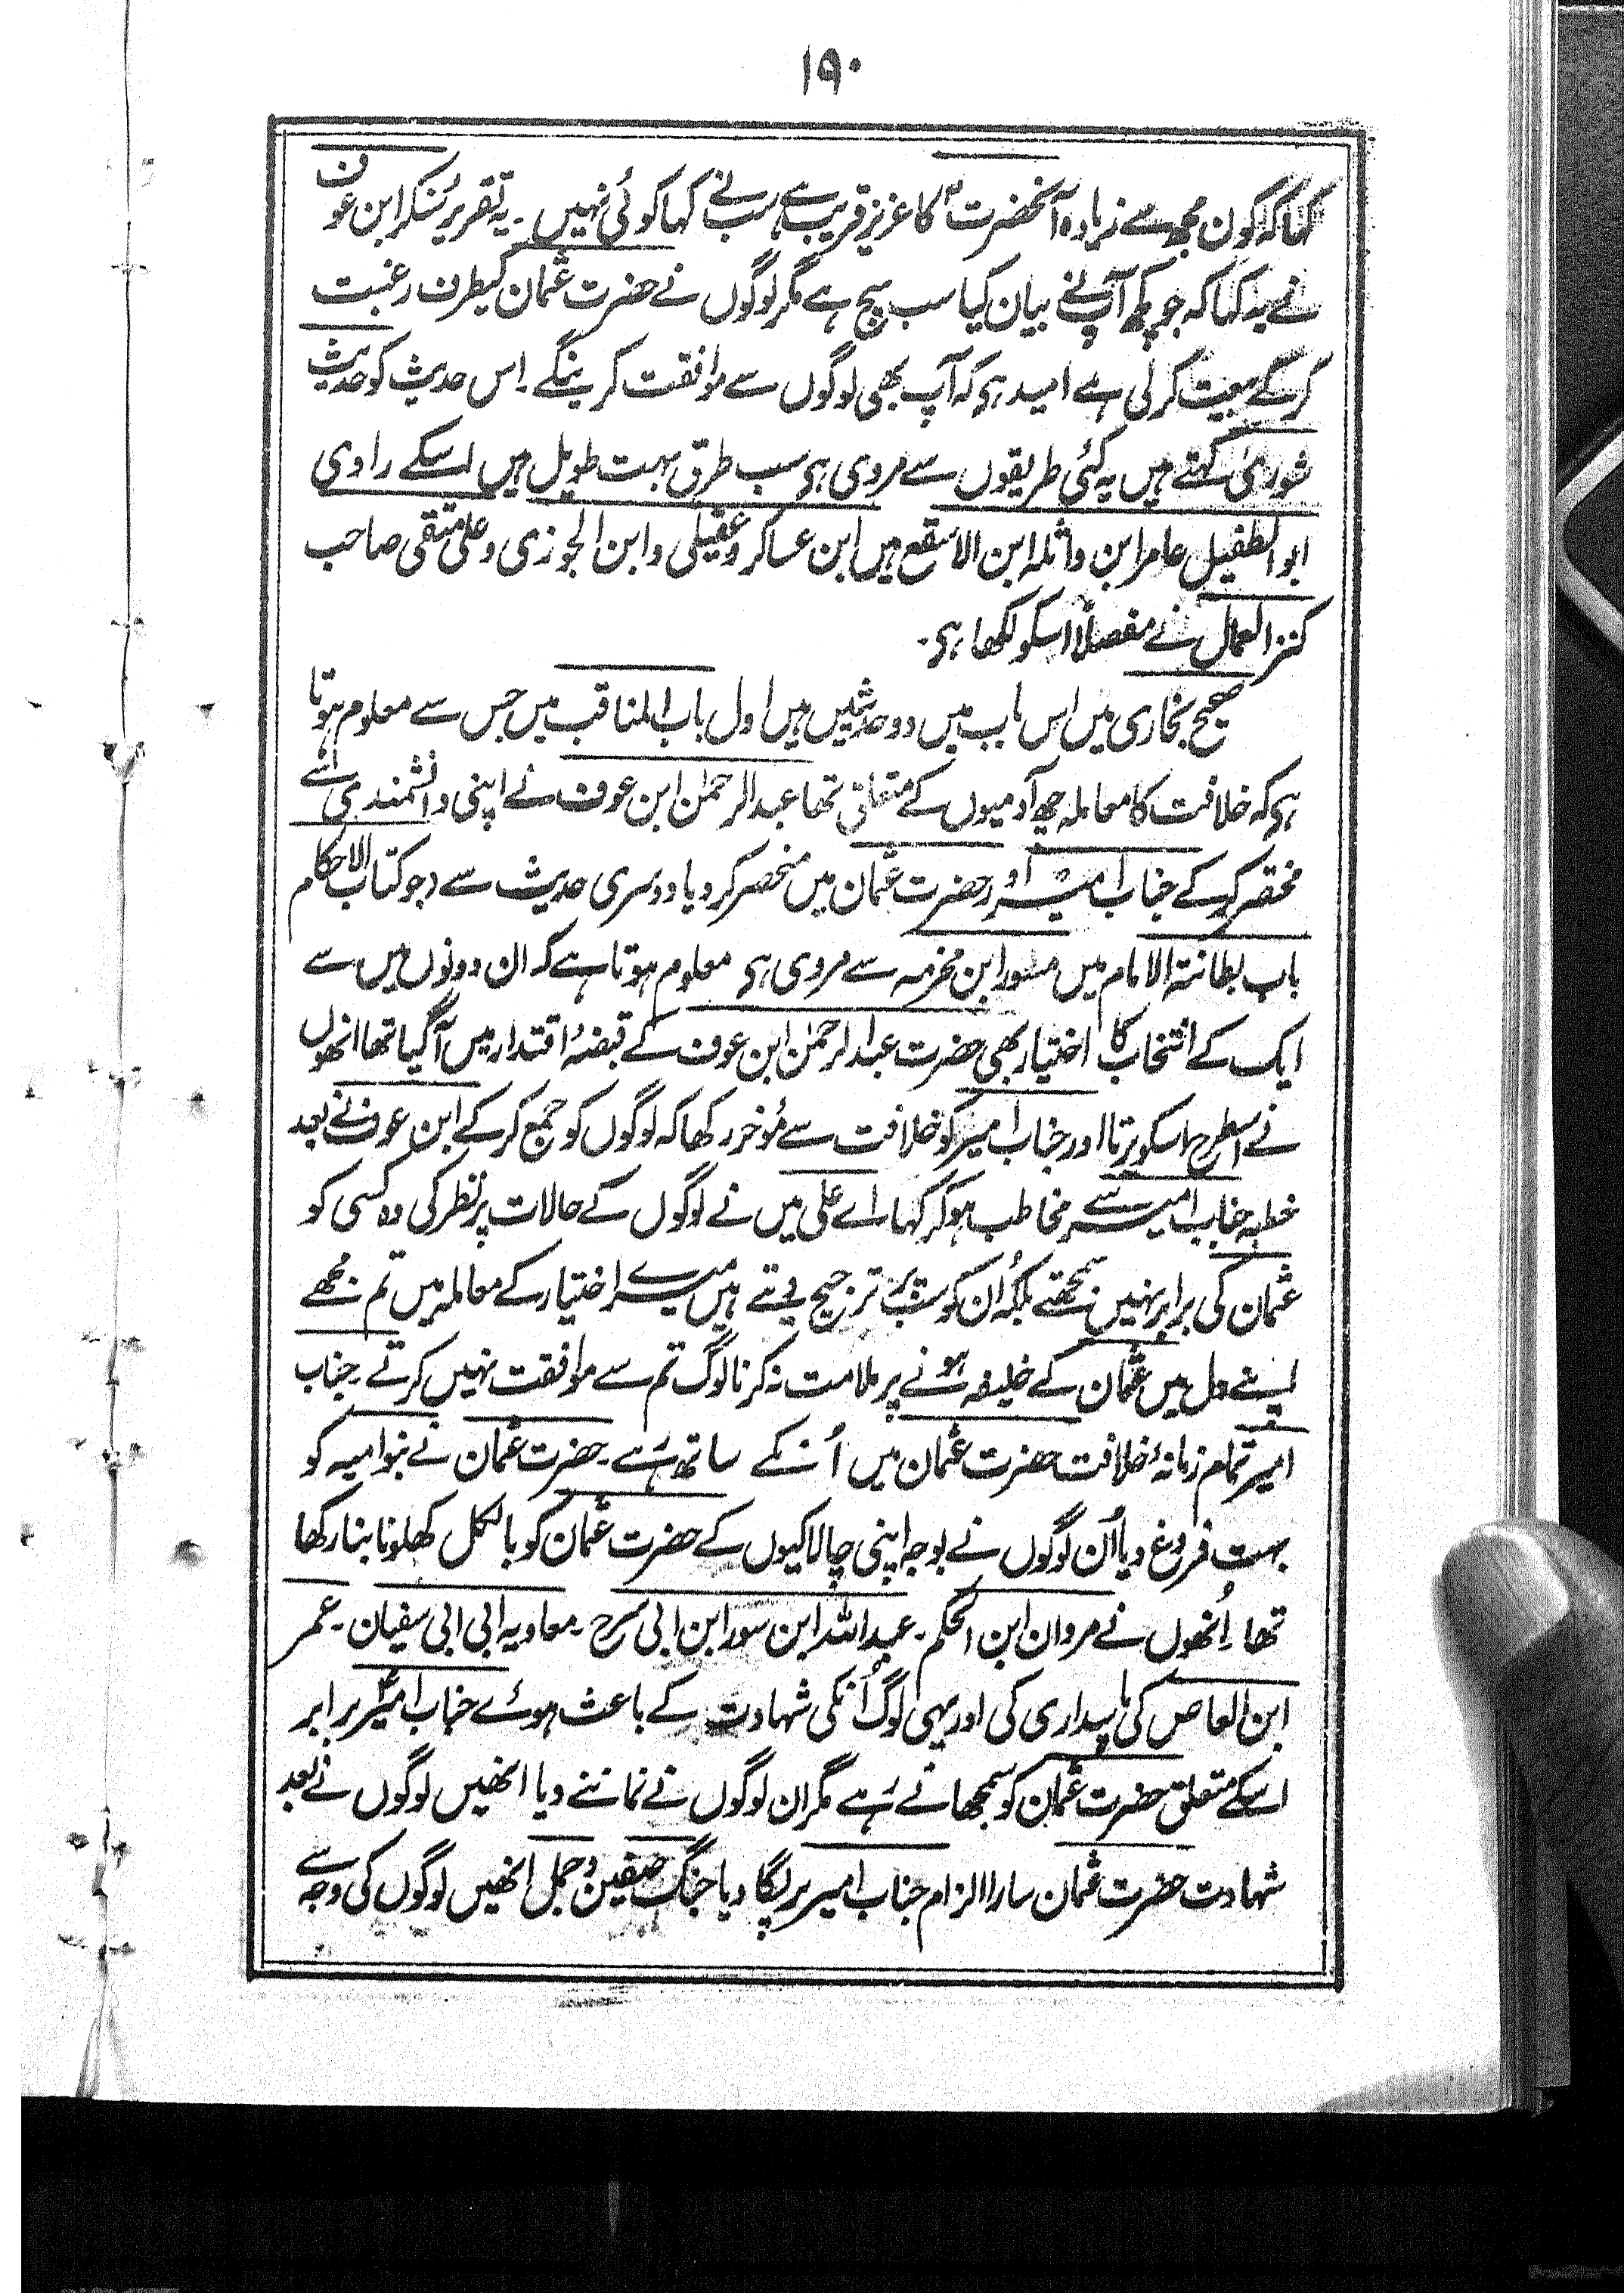 ۱۹۰
کہا کہ کون مجھ سے زیادہ آنحضرتؐ کا عزیز قریب ہے سب نے کہا کوئی نہیں ۔ یہ تقریر سُنکر ابن عوف
نے یہ کہا کہ جو کچھ آپ نے بیان کیا سب سچ ہے مگر لوگوں نے حضرت عثمان کیطرف رغبت
کرکے بیعت کرلی ہے امید ہی کہ آپ بھی لوگوں سے موافقت کرینگے ۔ اس حدیث کو حدیث
شوریٰ کہتے ہیں یہ کئی طریقوں سے مروی ہی سب طرق بہت طویل ہیں اسکے راوی
ابو الطفیل عامر ابن واثلہ ابن الاسقع ہیں ابن عساکر و عقیلی و ابن الجوزی و علی متقی صاحب
کنز العمال نے مفصلاً اسکو لکھا ہی ۔
صحیح بخاری میں اس باب میں دو حدیثیں ہیں اول باب المناقب میں جس سے معلوم ہوتا
ہی کہ خلافت کا معاملہ چھ آدمیوں کے متعلق تھا عبد الرحمٰن ابن عوف نے اپنی دانشمندی سے اسے
مختصر کرکے جناب امیرؑ اور حضرت عثمان میں منحصر کردیا دوسری حدیث سے (جو کتاب الاحکام
باب بطانۃ الامام میں مسور ابن مخرمہ سے مروی ہی معلوم ہوتا ہے کہ ان دونوں میں سے
ایک کے انتخاب کا اختیار بھی حضرت عبد الرحمٰن ابن عوف کے قبضۂ اقتدار میں آگیا تھا انھوں
نے اسطرح اسکو برتا اور جناب امیر کو خلافت سے مُوخر رکھا کہ لوگوں کو جمع کرکے ابن عوف نے بعد
خطبہ جناب امیر سے مخاطب ہوکر کہا اے علی میں نے لوگوں کے حالات پر نظر کی وہ کسی کو
عثمان کی برابر نہیں سمجھتے بلکہ اُن کو سب پر ترجیح دیتے ہیں میرے اختیار کے معاملہ میں تم مجھے
اپنے دل میں عثمان کے خلیفہ ہونے پر ملامت نہ کرنا لوگ تم سے موافقت نہیں کرتے ۔ جناب
امیر تمام زمانۂ خلافت حضرت عثمان میں اُنکے ساتھ رہے ۔ حضرت عثمان نے بنو امیہ کو
بہت فروغ دیا اُن لوگوں نے بوجہ اپنی چالاکیوں کے حضرت عثمان کو بالکل کھلونا بنا رکھا
تھا ۔ اُنھوں نے مروان ابن الحکم ۔ عبد اللہ ابن سور ابن ابی سرح ۔ معاویہ ابی ابی سفیان ۔ عمر
ابن العاص کی پاسداری کی اور یہی لوگ اُنکی شہادت کے باعث ہوئے جناب امیرؑ برابر
اسکے متعلق حضرت عثمان کو سمجھاتے رہے مگر ان لوگوں نے نماننے دیا انھیں لوگوں نے بعد
شہادت حضرت عثمان سارا الزام جناب امیر پر لگا دیا جنگ صفین و جمل انھیں لوگوں کی وجہ سے